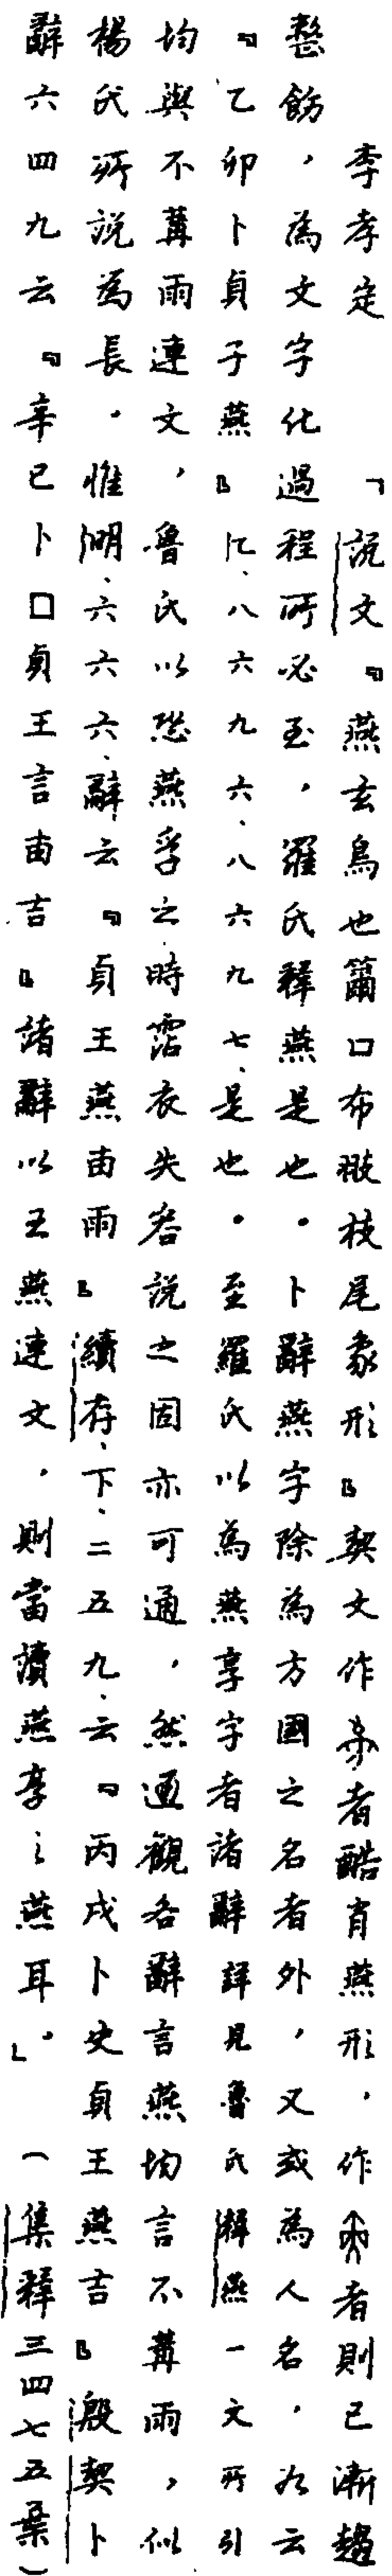 李孝定　「說文『燕玄鳥也籋口布翄枝尾象形』契文作者酷肖燕形，作者則已漸趨
整飭，為文字化過程所必至，羅氏釋燕是也。卜辭燕字除為方國之名者外，又或為人名，如云
『乙卯卜貞子燕』匚、八六九六、八六九七、是也。至羅氏以為燕享字者諸辭詳見魯氏釋燕一文所引
均與不冓雨連文，魯氏以恐燕孚之時霑衣失容說之固亦可通，然通觀各辭言燕均言不冓雨，似
楊氏所說為長。惟明、六六六、辭云『貞王燕叀雨』續存、下、二五九、云『丙戌卜史貞王燕吉』殷契卜
辭六四九云『辛巳卜□貞王言叀吉』諸辭以王燕連文，則當讀燕享之燕耳。」（集釋三四七五葉）